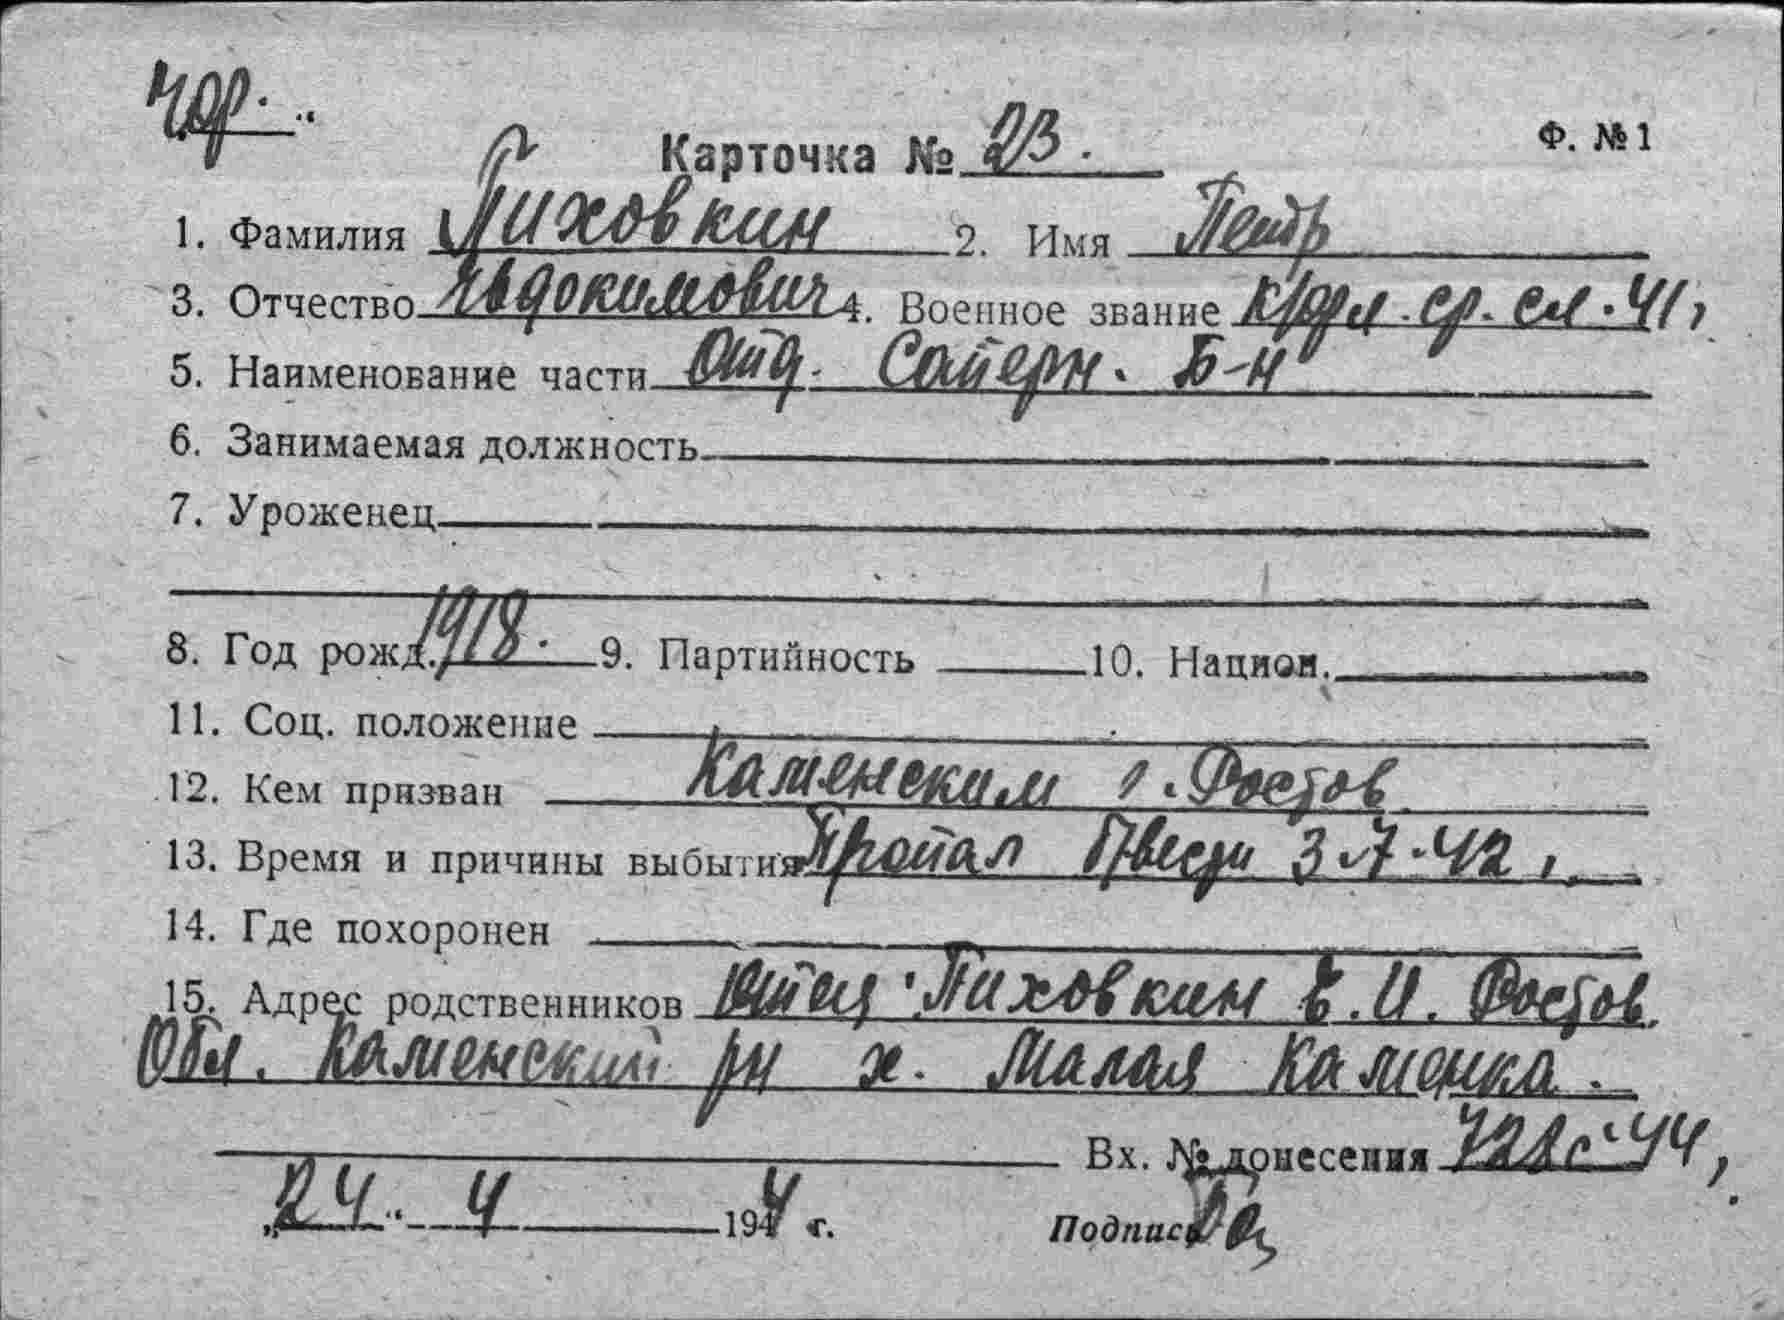 Карточка № 23. Ф. № 1
1. Фамилия Пиховкин 2. Имя Петр
3. Отчество Евдокимович 4. Военное звание ср. сл. 41,
5. Наименование части Отд. Саперн. Б-н
6. Занимаемая должность
7. Уроженец
8. Год рожд. 1918. 9. Партийность 10. Национ.
11. Соц. положение
12. Кем призван Каменским г. Ростов.
13. Время и причины выбытия Пропал 3.7.42,
14. Где похоронен
15. Адрес родственников отец Пиховкин Е. И. Ростов.
Обл. Каменский рн х. Малая Каменка.
Вх. № донесения
„24“ 4 1944 г. Подпись